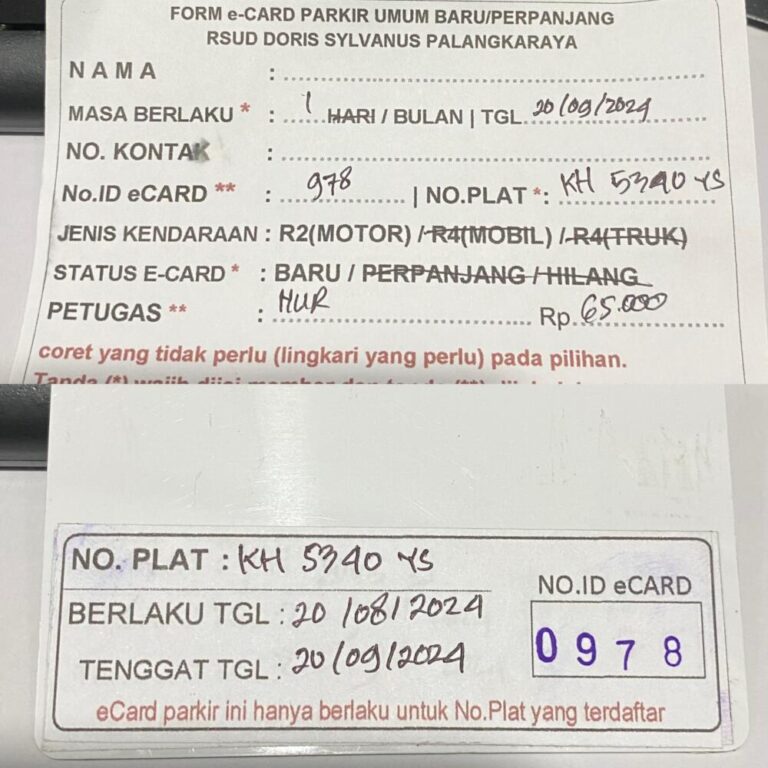 FORM e-CARD PARKIR UMUM BARU/PERPANJANG
RSUD DORIS SYLVANUS PALANGKARAYA
NAMA :
MASA BERLAKU * : 1 HARI / BULAN | TGL 20/09/2024
NO. KONTAK :
No.ID eCARD ** : 978 | NO.PLAT *: KH 5340 YS
JENIS KENDARAAN : R2(MOTOR) / R4(MOBIL) / R4(TRUK)
STATUS E-CARD * : BARU / PERPANJANG / HILANG
PETUGAS ** : NUR Rp. 65.000
coret yang tidak perlu (lingkari yang perlu) pada pilihan.
Tanda (*) wajib diisi member dan tanda (**)
NO. PLAT : KH 5340 YS
BERLAKU TGL : 20/08/2024
TENGGAT TGL : 20/09/2024
NO.ID eCARD
0978
eCard parkir ini hanya berlaku untuk No.Plat yang terdaftar